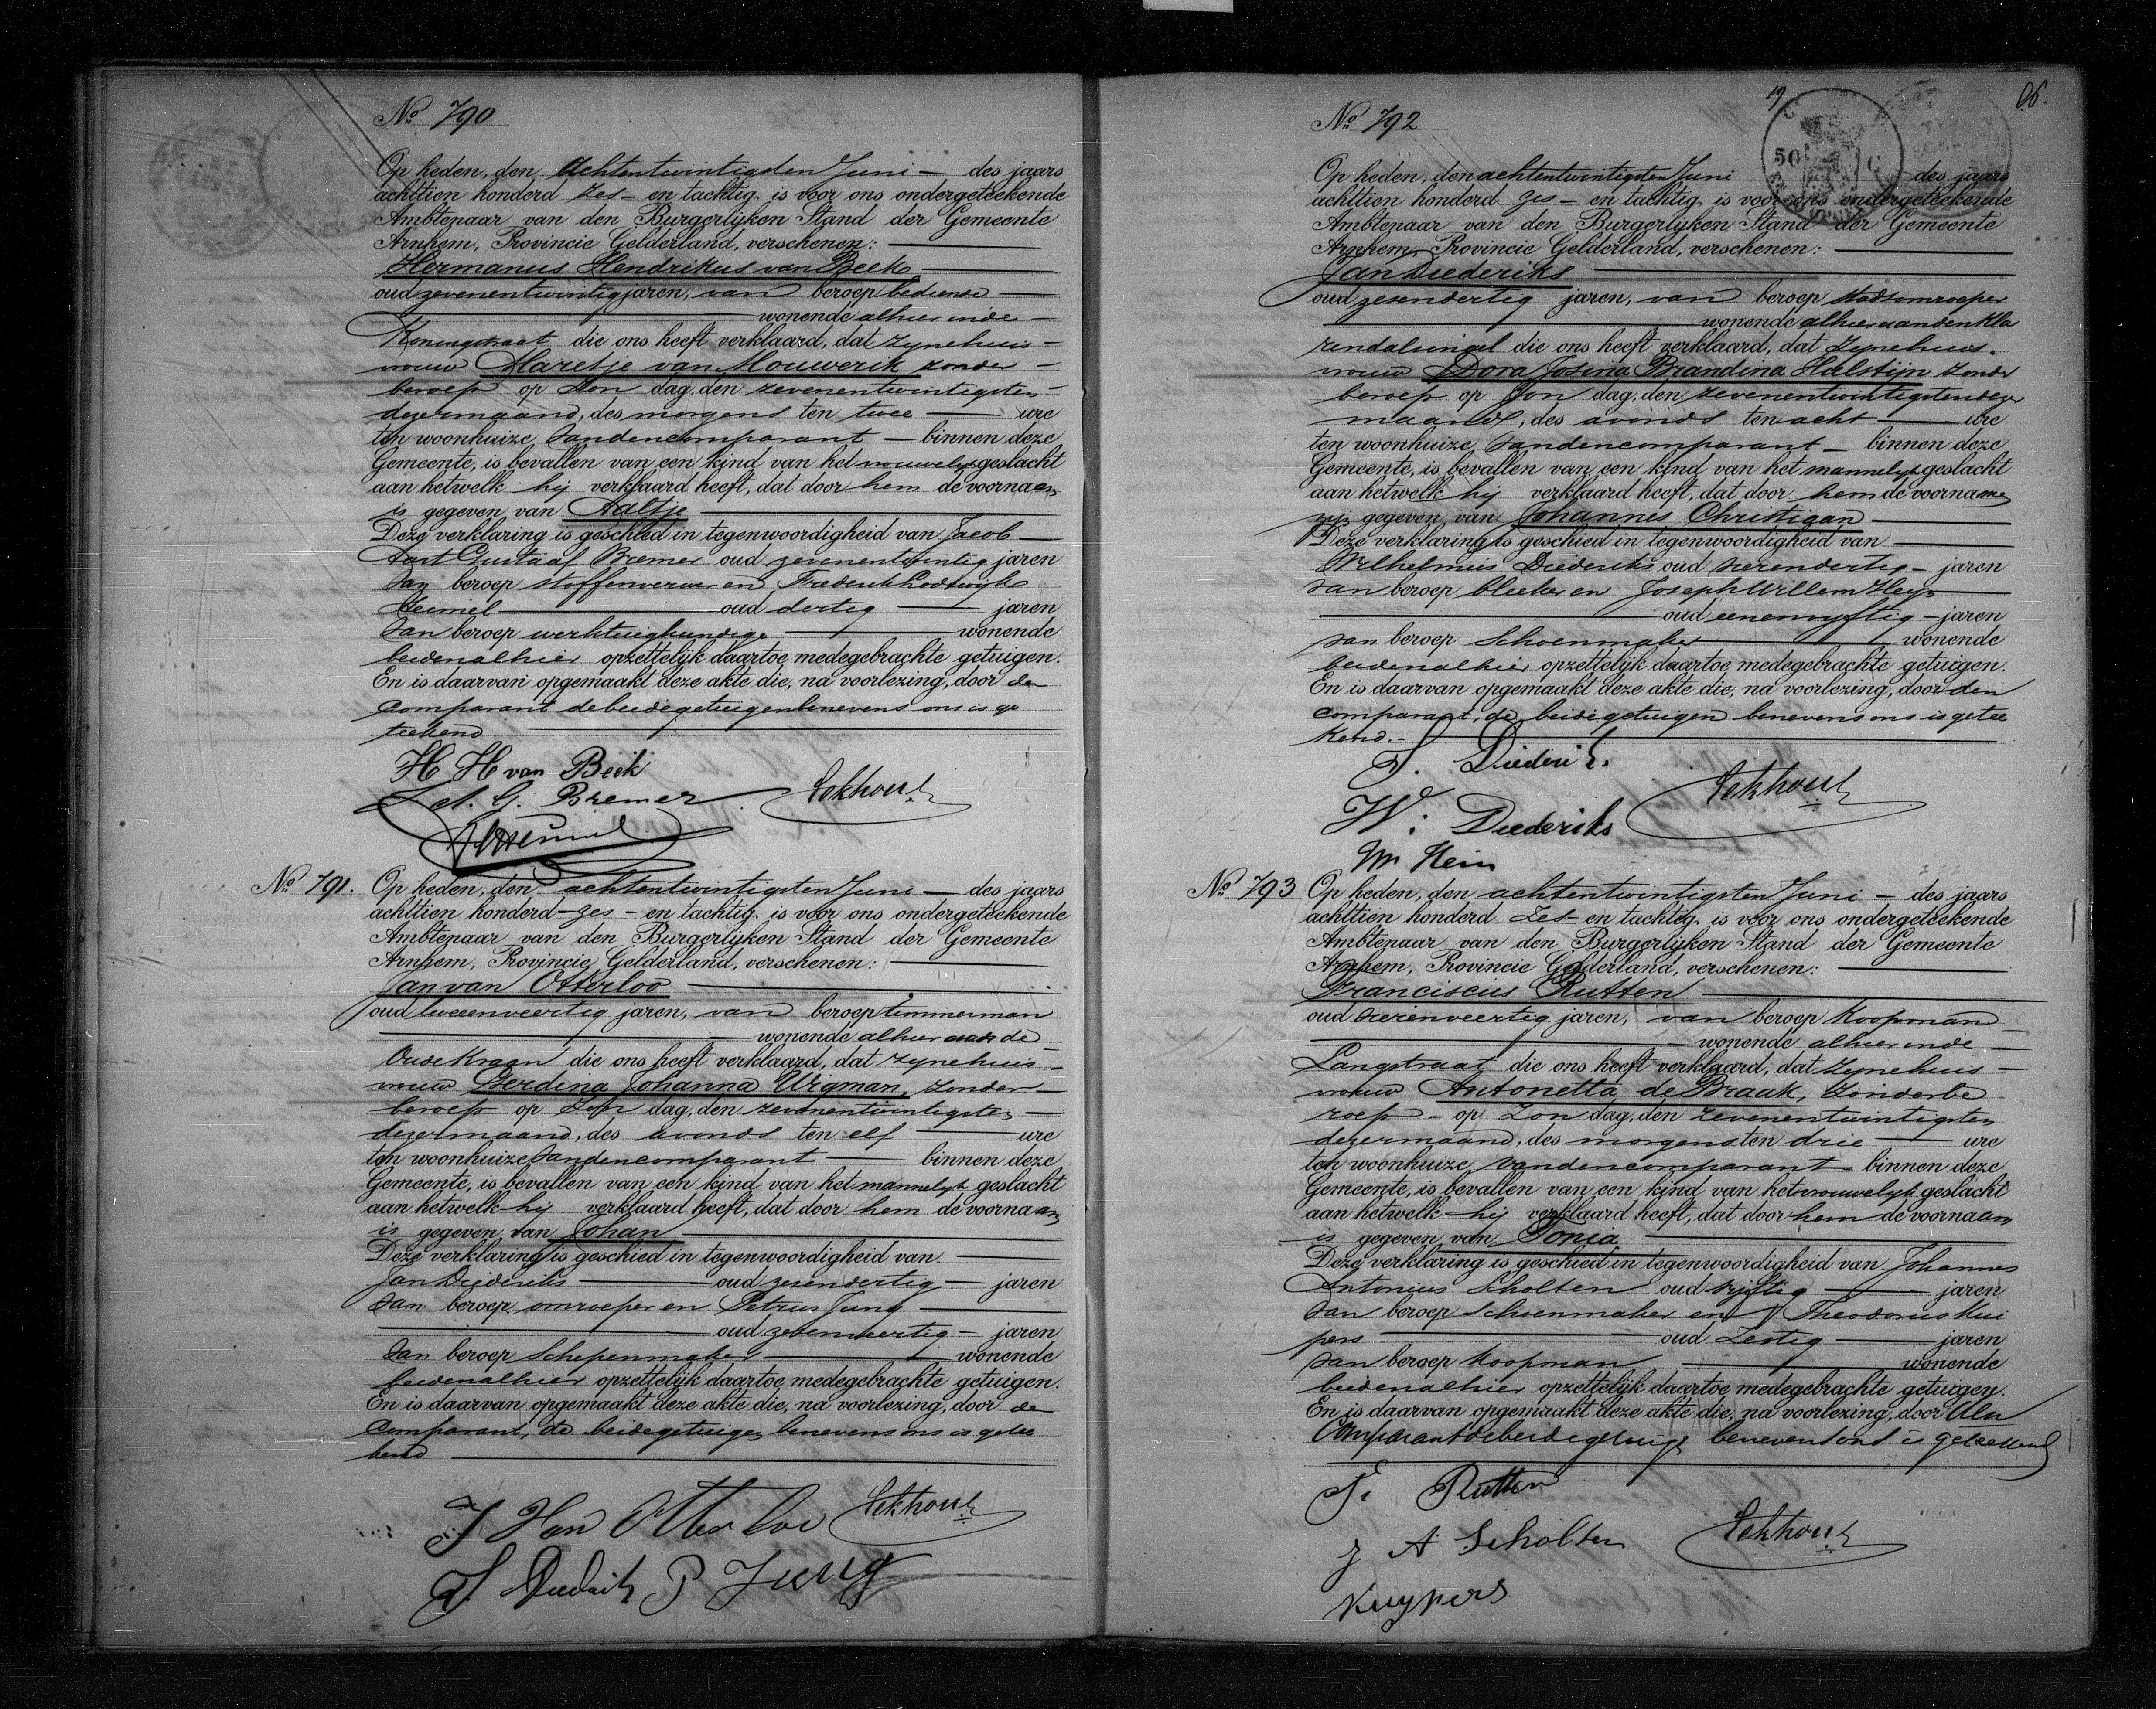 No. 790
Op heden, den achtentwintigsten Juni — des jaars
achttien honderd zes - en tachtig, is voor ons ondergeteekende
Ambtenaar van den Burgerlijken Stand der Gemeente
Arnhem, Provincie Gelderland, verschenen:
Hermanus Hendrikus van Beek
oud zevenentwintig jaren, van beroep bediende
wonende alhier in de
Koningstraat die ons heeft verklaard, dat zijne huis-
vrouw Maretje van Mouwerik zonder
beroep op Zon dag, den zevenentwintigsten
dezer maand, des morgens ten twee ure
ten woonhuize van den comparant — binnen deze
Gemeente, is bevallen van een kind van het vrouwelijk geslacht
aan hetwelk hij verklaard heeft, dat door hem de voornaam
is gegeven van Aaltje
Deze verklaring is geschied in tegenwoordigheid van Jacob
Aart Gustaaf Bremer oud zevenentwintig jaren
van beroep stoffenverver en Frederik Lodewijk
oud dertig jaren
van beroep werktuigkundige wonende
beiden alhier opzettelijk daartoe medegebrachte getuigen.
En is daarvan opgemaakt deze akte die, na voorlezing, door de
comparant de beide getuigen benevens ons is ge
teekend
H H van Beek
J. A. G. Bremer
Eekhout
No. 791.
Op heden, den achtentwintigsten Juni — des jaars
achttien honderd - zes - en tachtig, is voor ons ondergeteekende
Ambtenaar van den Burgerlijken Stand der Gemeente
Arnhem, Provincie Gelderland, verschenen:
Jan van Otterloo
oud tweeenveertig jaren, van beroep timmerman
wonende alhier aan de
Oude Kraan die ons heeft verklaard, dat zijne huis-
vrouw Gerdina Johanna Wigman, zonder
beroep op Zon dag, den zevenentwintigsten
dezer maand, des avonds ten elf ure
ten woonhuize van den comparant — binnen deze
Gemeente, is bevallen van een kind van het mannelijk geslacht
aan hetwelk hij verklaard heeft, dat door hem de voornaam
is gegeven van Johan
Deze verklaring is geschied in tegenwoordigheid van
Jan Diederiks oud zesendertig — jaren
van beroep omroeper en Petrus Jung
oud zevenveertig — jaren
van beroep Schepenmaker wonende
beiden alhier opzettelijk daartoe medegebrachte getuigen.
En is daarvan opgemaakt deze akte die, na voorlezing, door de
comparant, de beide getuigen benevens ons is getee
kend
J Van Otterloo
Eekhout
J. Diederiks P Jung
19
06.
No. 792
50
Op heden, den achtentwintigsten Juni des jaars
achttien honderd zes - en tachtig, is voor ons ondergeteekende
Ambtenaar van den Burgerlijken Stand der Gemeente
Arnhem, Provincie Gelderland, verschenen:
Jan Diederiks
oud zesendertig jaren, van beroep stadsomroeper
wonende alhier aan den Kla
rendalsingel die ons heeft verklaard, dat zijne huis-
vrouw Dora Josina Brandina Halstijn zonder
beroep op Zon dag, den zevenentwintigsten dezer
maand, des avonds ten acht ure
ten woonhuize van den comparant — binnen deze
Gemeente, is bevallen van een kind van het mannelijk geslacht
aan hetwelk hij verklaard heeft, dat door hem de voorname
zijn gegeven van Johannes Christiaan
Deze verklaring is geschied in tegenwoordigheid van
Wilhelmus Diederiks oud vierendertig — jaren
van beroep bleeker en Joseph Willem
oud eenenvijftig — jaren
van beroep Schoenmaker wonende
beiden alhier opzettelijk daartoe medegebrachte getuigen.
En is daarvan opgemaakt deze akte die, na voorlezing, door den
comparant, de beide getuigen benevens ons is getee
kend.
J. Diederiks
Eekhout
W. Diederiks
No. 793
Op heden, den achtentwintigsten Juni — des jaars
achttien honderd Zes - en tachtig, is voor ons ondergeteekende
Ambtenaar van den Burgerlijken Stand der Gemeente
Arnhem, Provincie Gelderland, verschenen:
Franciscus Rutten
oud vierenveertig jaren, van beroep Koopman
wonende alhier in de
Langstraat die ons heeft verklaard, dat zijne huis-
vrouw Antonetta de Braak, zonder be
roep - op Zon dag, den zevenentwintigsten
dezer maand, des morgens ten drie ure
ten woonhuize van den comparant — binnen deze
Gemeente, is bevallen van een kind van het vrouwelijk geslacht
aan hetwelk hij verklaard heeft, dat door hem de voornaam
is gegeven van Sonia
Deze verklaring is geschied in tegenwoordigheid van Johannes
Antonius Scholten oud vijftig jaren
van beroep schoenmaker en Theodorus Kui
pers oud Zestig jaren
van beroep Koopman wonende
beiden alhier opzettelijk daartoe medegebrachte getuigen.
En is daarvan opgemaakt deze akte die, na voorlezing, door den
Comparant de beide getuigen benevens ons is geteekend
F. Rutten
J A Scholten
Eekhout
Kuypers